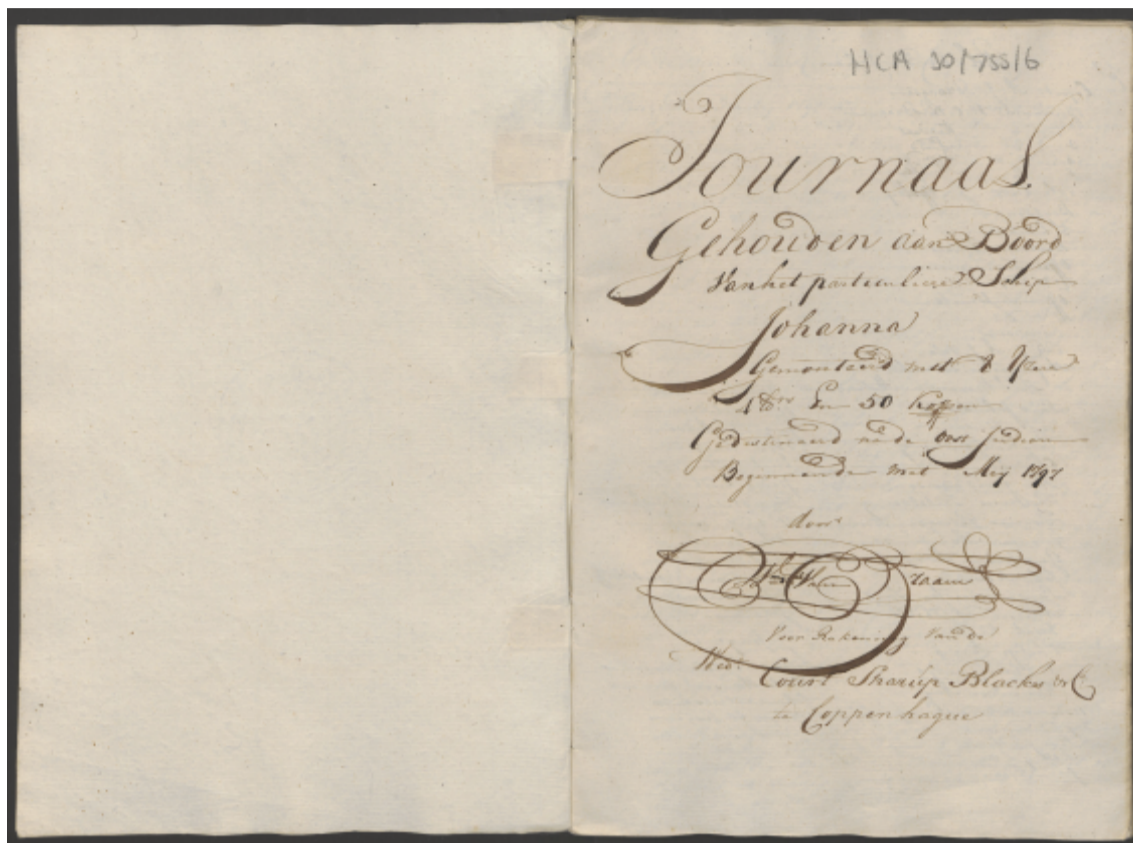 HCA 30/755/6
Journaal
Gehouden aan Boord
Van het particuliere Schip
Johanna
Gemonteerd met 8 Yzere
En 50 koppen
Gedestineerd na de oost Indien
Beginnende met Meij 1797
door
Voor Rekening van de
Court Blacke
te Coppenhague